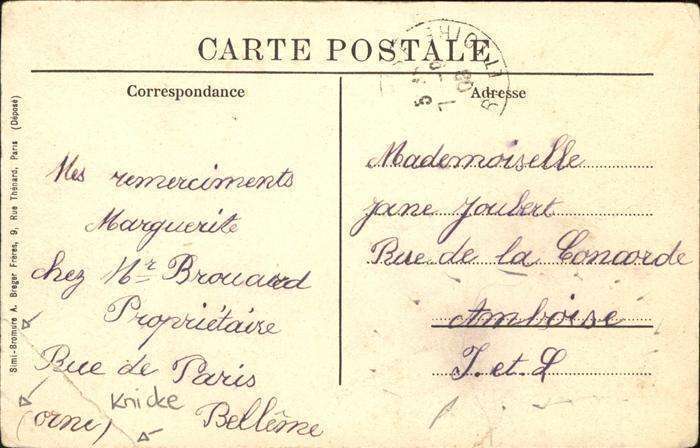 CARTE POSTALE
Correspondance
Adresse
Simi-Bromure A. Breger Frères, 9, Rue Thénard, Paris (Déposé)
Mes remerciments
Marguerite
chez Mr Brouard
Propriétaire
Rue de Paris
(orne) Bellême
Knicke
Mademoiselle
Jane Joubert
Rue de la Concorde
Amboise
I. et. L